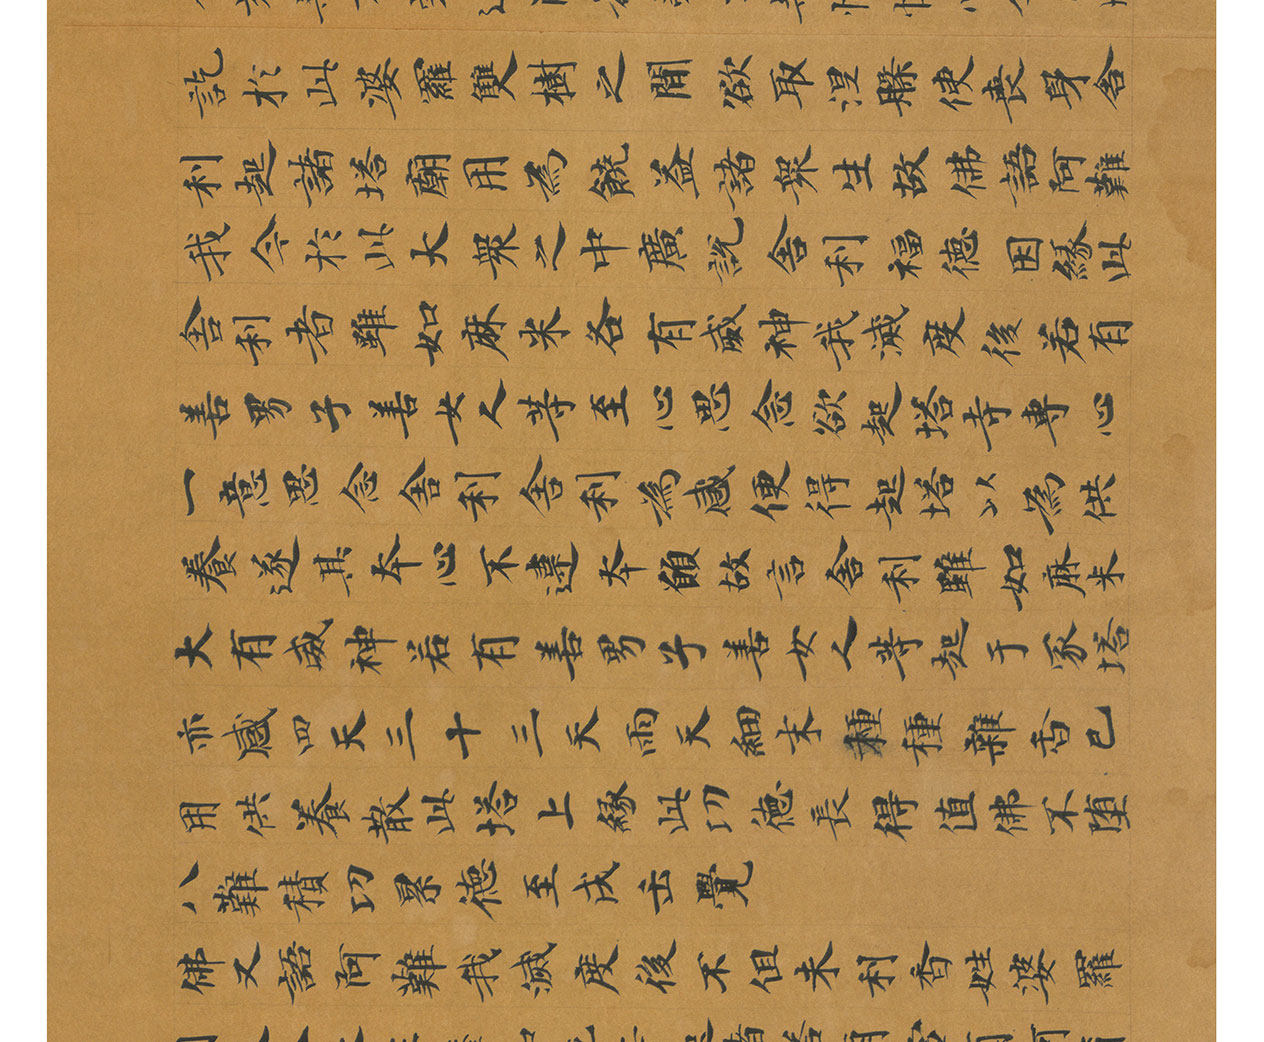 訖於此婆羅雙樹之間欲取涅槃使喪身舍
利起諸塔廟用為饒益諸眾生故佛語阿難
我今於此大眾之中廣說舍利福德因緣此
舍利者雖如麻米各有威神我滅度後若有
善男子善女人等至心思念欲起塔寺專心
一意思念舍利舍利為感便得起塔以為供
養遂其本心不違本願故言舍利雖如麻米
大有威神若有善男子善女人等起于冢塔
亦感四天三十三天雨天細末種種雜香已
用供養散此塔上緣此功德長得值佛不墮
八難積功累德至成正覺
佛又語阿難我滅度後不但末利香姓婆羅